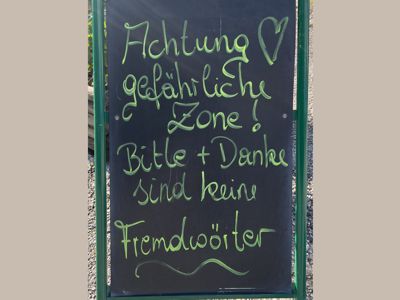 Achtung ♡
gefährliche
Zone!
Bitte + Danke
sind keine
Fremdwörter